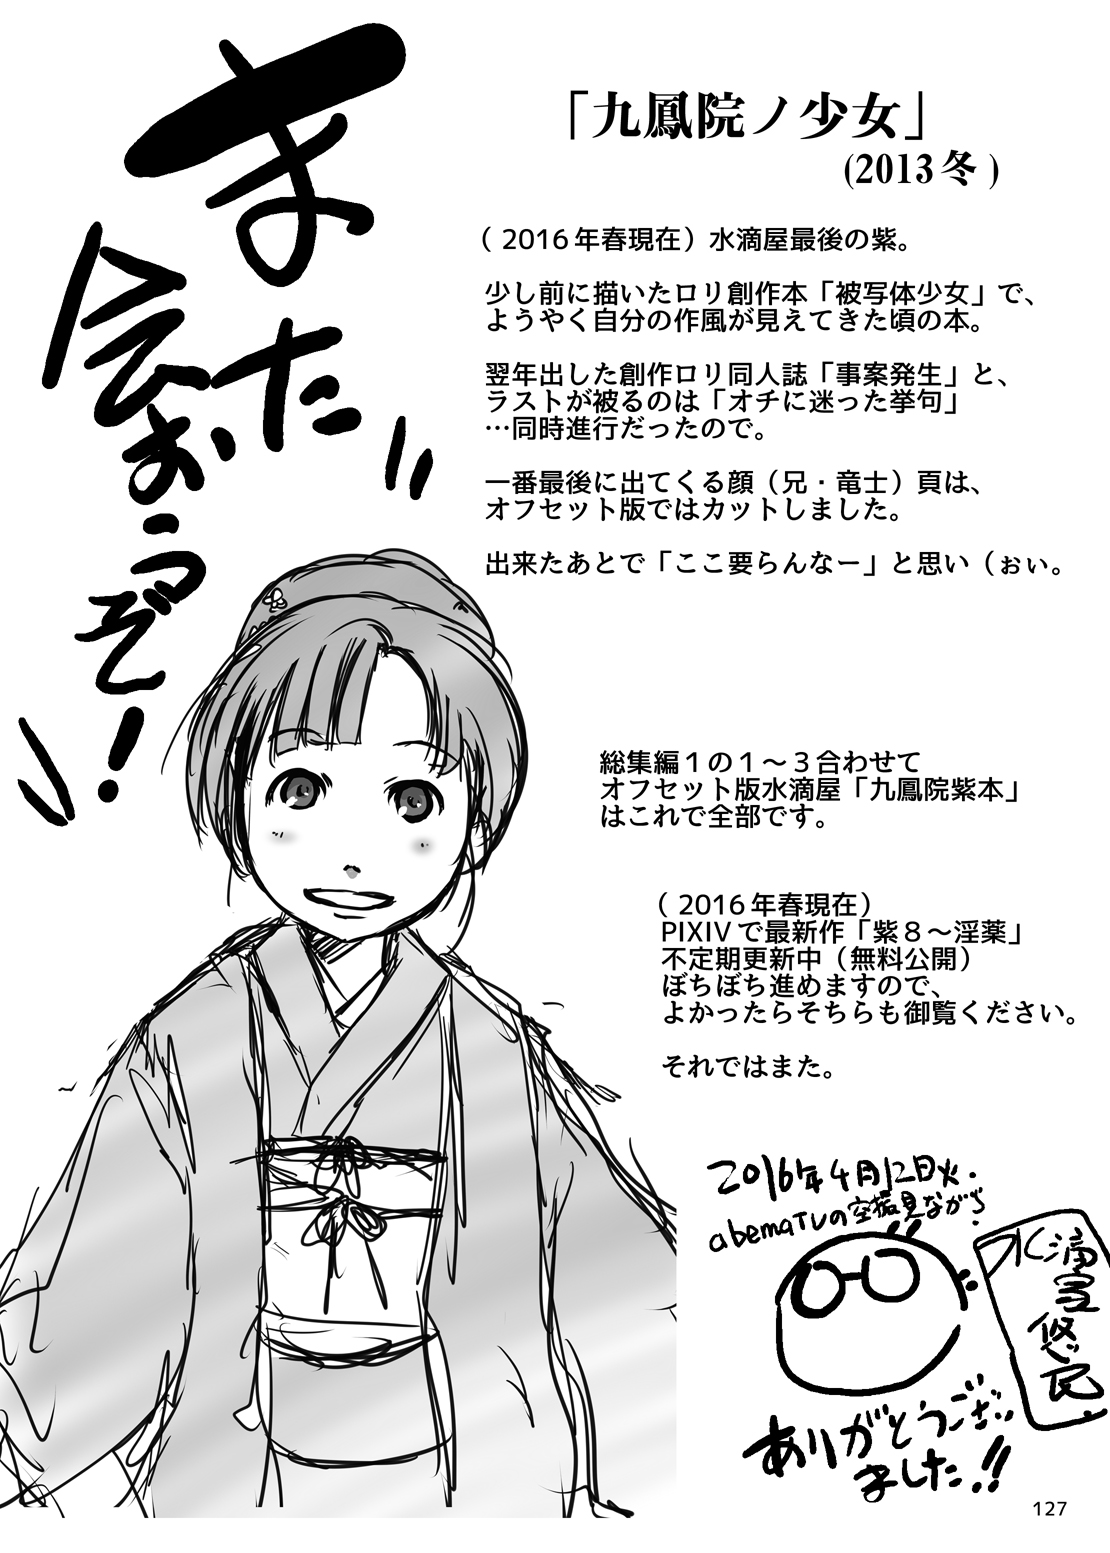 また
会おうぞ!
「九鳳院ノ少女」
(2013冬)
( 2016年春現在）水滴屋最後の紫。
少し前に描いたロリ創作本「被写体少女」で、
ようやく自分の作風が見えてきた頃の本。
翌年出した創作ロリ同人誌「事案発生」と、
ラストが被るのは「オチに迷った挙句」
…同時進行だったので。
一番最後に出てくる顔（兄・竜士）頁は、
オフセット版ではカットしました。
出来たあとで「ここ要らんなー」と思い（ぉぃ。
総集編１の１～３合わせて
オフセット版水滴屋「九鳳院紫本」
はこれで全部です。
( 2016年春現在）
PIXIVで最新作「紫８～淫薬」
不定期更新中（無料公開）
ぼちぼち進めますので、
よかったらそちらも御覧ください。
それではまた。
2016年4月12日火.
abemaTVの空挺見ながら
水滴屋悠民
ありがとうござい
ました!!
127